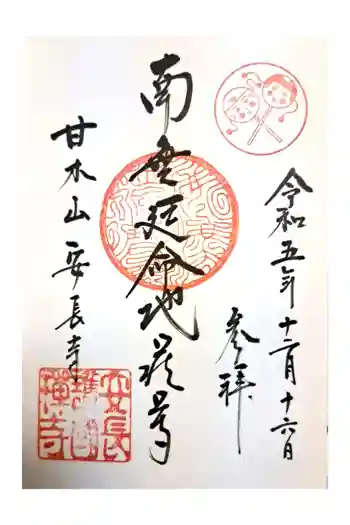 令和五年十二月十六日
参拝
南無延命地蔵尊
甘木山安長寺
安長
護國
禪寺